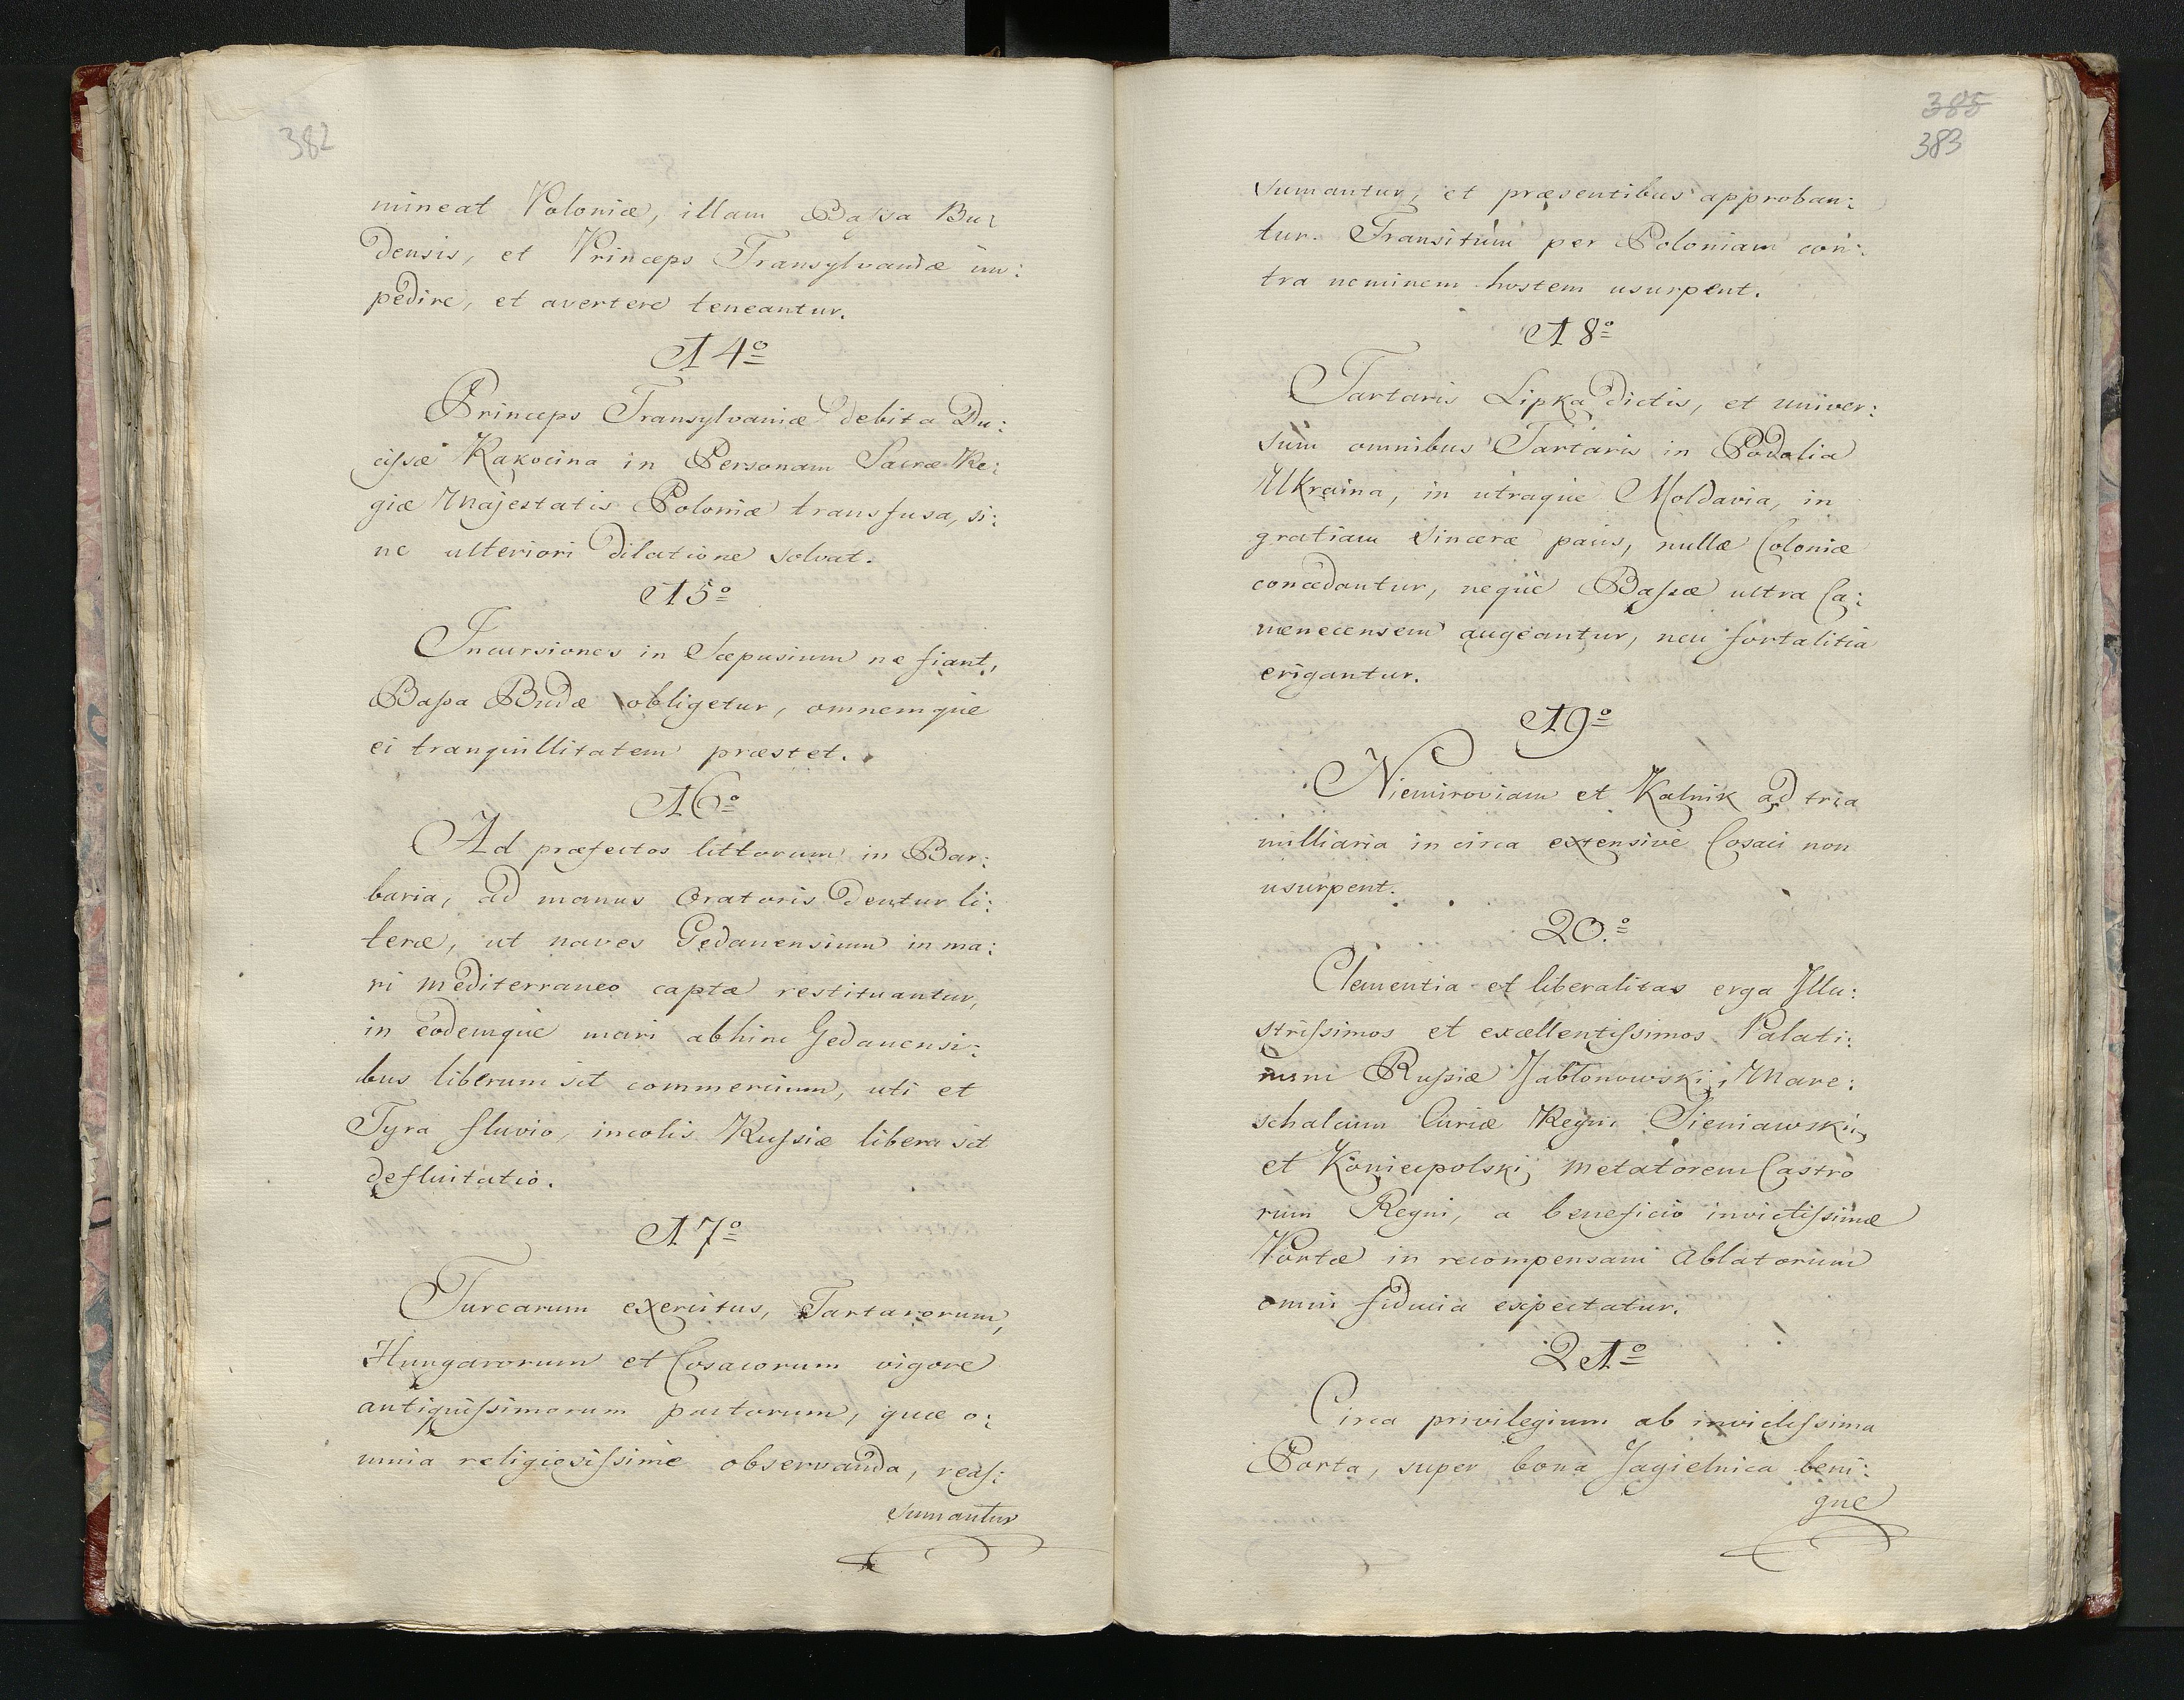 382
mineat Poloniæ, illam Bassa Bu:
densis, et Princeps Transylvaniæ im:
pedire, et avertere teneantur.
14º
Princeps Transylvaniæ debita Du:
cissæ Rakocina in Personam Sacræ Re:
giæ Majestatis Poloniæ transfusa, si:
ne ulteriori dilatione solvat.
15º
Incursiones in Scepusium ne fiant,
Bassa Budæ obligetur, omnemque
ei tranquillitatem præstet.
16º
Ad præfectos littorum in Bar:
baria, ad manus Oratoris dentur li:
teræ, ut naves Gedanensium in ma:
ri mediterraneo captæ restituantur,
in eodemque mari abhinc Gedanensi:
bus liberum sit commercium, uti et
Tyra fluvio, incolis Russiæ libera sit
defluitatio.
17º
Turcarum exercitus, Tartarorum,
Hungarorum et Cosacorum vigore
antiquissimorum pactorum, quæ o:
mnia religiosissime observanda, reas:
sumantur
385
383
sumantur, et præsentibus approban:
tur. Transitum per Poloniam con:
tra neminem hostem usurpent.
18º
Tartaris Lipka dictis, et univer:
sum omnibus Tartaris in Podolia
Ukraina, in utraque Moldavia, in
gratiam sinceræ pacis, nullæ Coloniæ
concedantur, neque Bassæ ultra Ca:
menecensem augeantur, neu fortalitia
erigantur.
19º
Niemiroviam et Kalnik ad tria
milliaria in circa extensive Cosaci non
usurpent.
20.º
Clementia et liberalitas erga Illu:
strissimos et excellentissimos Palati:
num Russiæ Jabłonowski, Mare:
schalcum Curiæ Regni Sieniawski,
et Koniecpolski, metatorem Castro
rum Regni, a beneficio invictissimæ
Portæ in recompensam ablatorum
omni fiducia expectatur.
21º
Circa privilegium ab invictissima
Porta, super bona Jagielnica beni:
gne